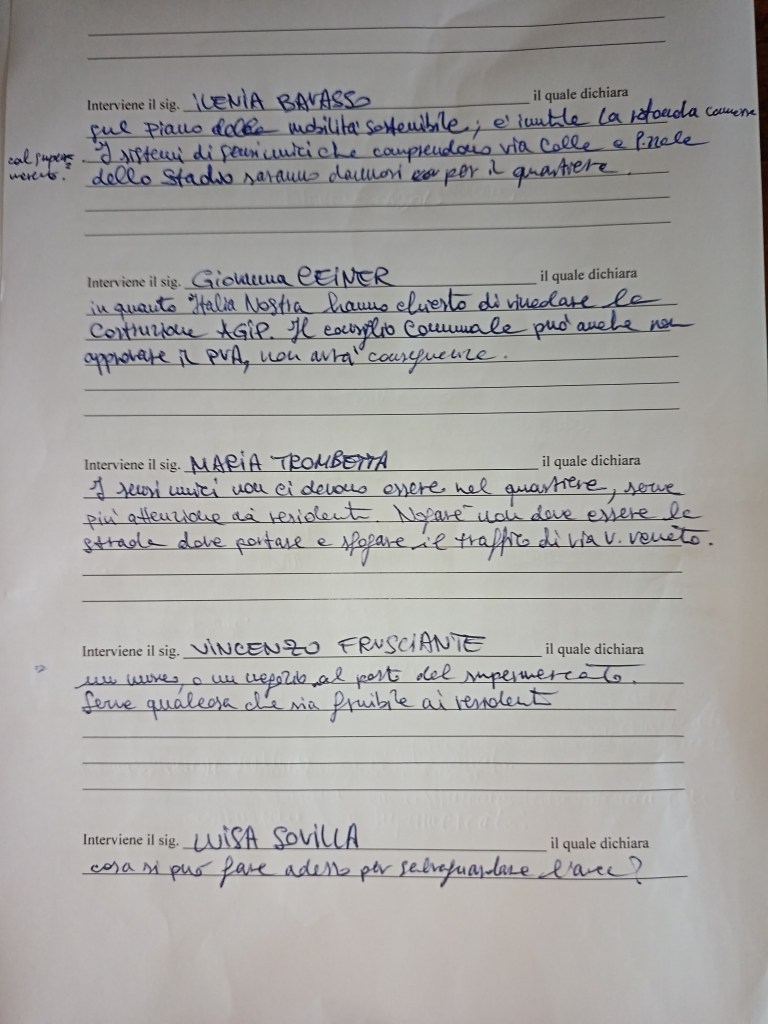 Interviene il sig. ILENIA BAVASSO il quale dichiara
sul Piano della mobilità sostenibile; è inutile la rotonda connessa
col supermercato.
I sistemi di sensi unici che comprendono via Colle e P.zale
dello Stadio saranno dannosi per il quartiere.
Interviene il sig. Giovanna CEINER il quale dichiara
in quanto Italia Nostra hanno chiesto di vincolare la
Costruzione AGIP. Il consiglio Comunale può anche non
approvare il PUA, non avrà conseguenze.
Interviene il sig. MARIA TROMBETTA il quale dichiara
I sensi unici non ci devono essere nel quartiere, serve
più attenzione ai residenti. Nogarè non deve essere la
strada dove portare e sfogare il traffico di via V. Veneto.
Interviene il sig. VINCENZO FRUSCIANTE il quale dichiara
un museo, o un negozio al posto del supermercato.
Serve qualcosa che sia fruibile ai residenti
Interviene il sig. LUISA SOVILLA il quale dichiara
cosa si può fare adesso per salvaguardare l'area?